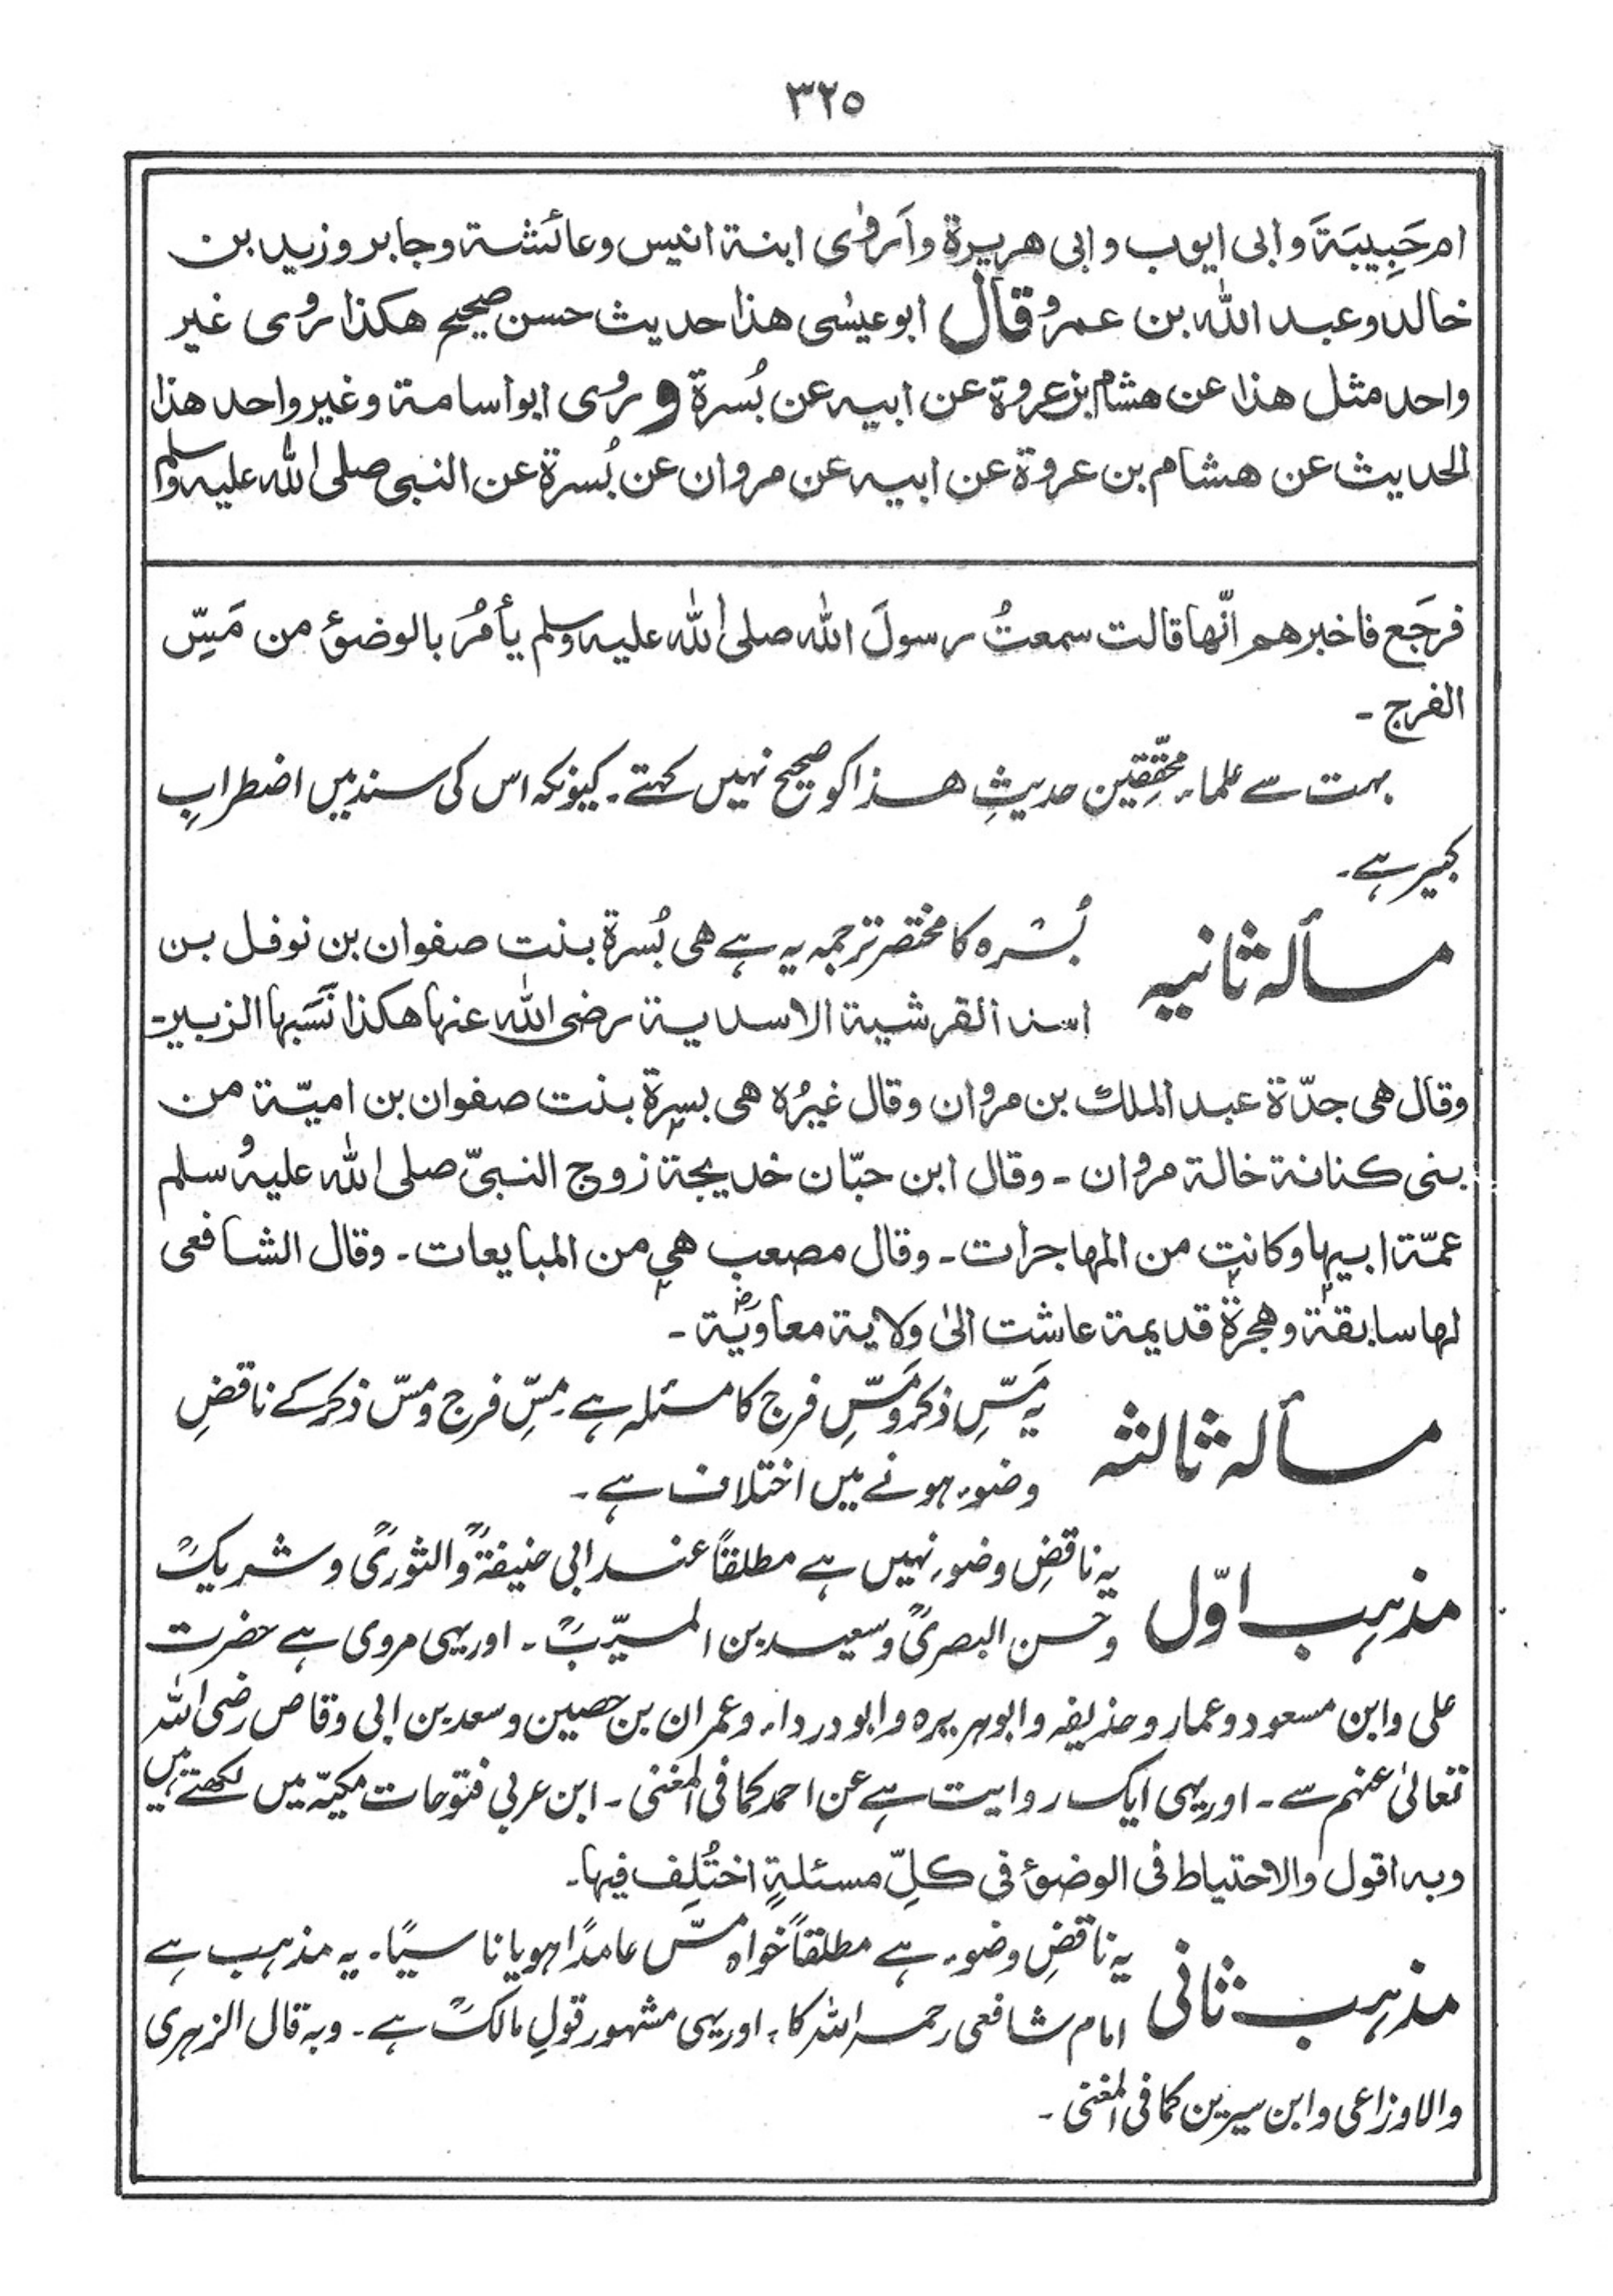 ۳۲۵
ام حَبِيبَةَ وابی ایوب وابی هریرة واَروٰی ابنة انیس وعائشة وجابر وزید بن
خالد وعبد الله بن عمرو قال ابو عیسٰی هذا حدیث حسن صحیح هكذا روٰی غیر
واحد مثل هذا عن هشام بن عروة عن ابیه عن بُسرة و روٰی ابو اسامة وغیر واحد هذا
الحدیث عن هشام بن عروة عن ابیه عن مروان عن بُسرة عن النبی صلی الله علیه وسلم
فرجَع فاخبرهم انّها قالت سمعتُ رسولَ الله صلی الله علیه وسلم یأمُرُ بالوضوٴ من مَسِّ
الفرج ۔
بہت سے علماء محقّقِین حدیثِ ھذا کو صحیح نہیں کہتے ۔ کیونکہ اس کی سند میں اضطرابِ
کبیر ہے ۔
مسألہ ثانیہ بُسْرہ کا مختصر ترجمہ یہ ہے هی بُسرة بنت صفوان بن نوفل بن
اسد القرشیة الاسدیة رضی الله عنها هكذا نَسَبَها الزبیر
وقال هی جدّة عبد الملك بن مروان وقال غیرُہ هی بسرة بنت صفوان بن امیّة من
بنی كنانة خالة مروان ۔ وقال ابن حبّان خدیجة زوج النبیّ صلی الله علیه وسلم
عمّة ابیها وكانت من المهاجرات ۔ وقال مصعب هی من المبایعات ۔ وقال الشافعی
لها سابقة وهجرة قدیمة عاشت الیٰ ولایة معاویةؓ ۔
مسألہ ثالثہ یہ مَسِّ ذکر و مَسِّ فرج کا مسئلہ ہے ۔ مسِّ فرج و مسّ ذکر کے ناقضِ
وضوء ہونے میں اختلاف ہے ۔
مذہبِ اوّل یہ ناقضِ وضوء نہیں ہے مطلقاً عند ابی حنیفةؒ والثوریؒ وشریکؒ
وحسن البصریؒ وسعید بن المسیّبؒ ۔ اور یہی مروی ہے حضرت
علی وابن مسعود وعمار وحذیفہ وابوہریرہ وابودرداء وعمران بن حصین وسعد بن ابی وقاص رضی اللہ
تعالیٰ عنہم سے ۔ اور یہی ایک روایت ہے عن احمد کما فی المغنی ۔ ابن عربی فتوحات مکیّہ میں لکھتے ہیں
وبه اقول والاحتیاط فی الوضوٴ فی كلِّ مسئلةٍ اختُلِف فیها ۔
مذہبِ ثانی یہ ناقضِ وضوء ہے مطلقاً خواہ مسّ عامدًا ہو یا ناسیًا ۔ یہ مذہب ہے
امام شافعی رحمہ اللہ کا ۔ اور یہی مشہور قولِ مالکؒ ہے ۔ وبہ قال الزہری
والاوزاعی وابن سیرین کما فی المغنی ۔